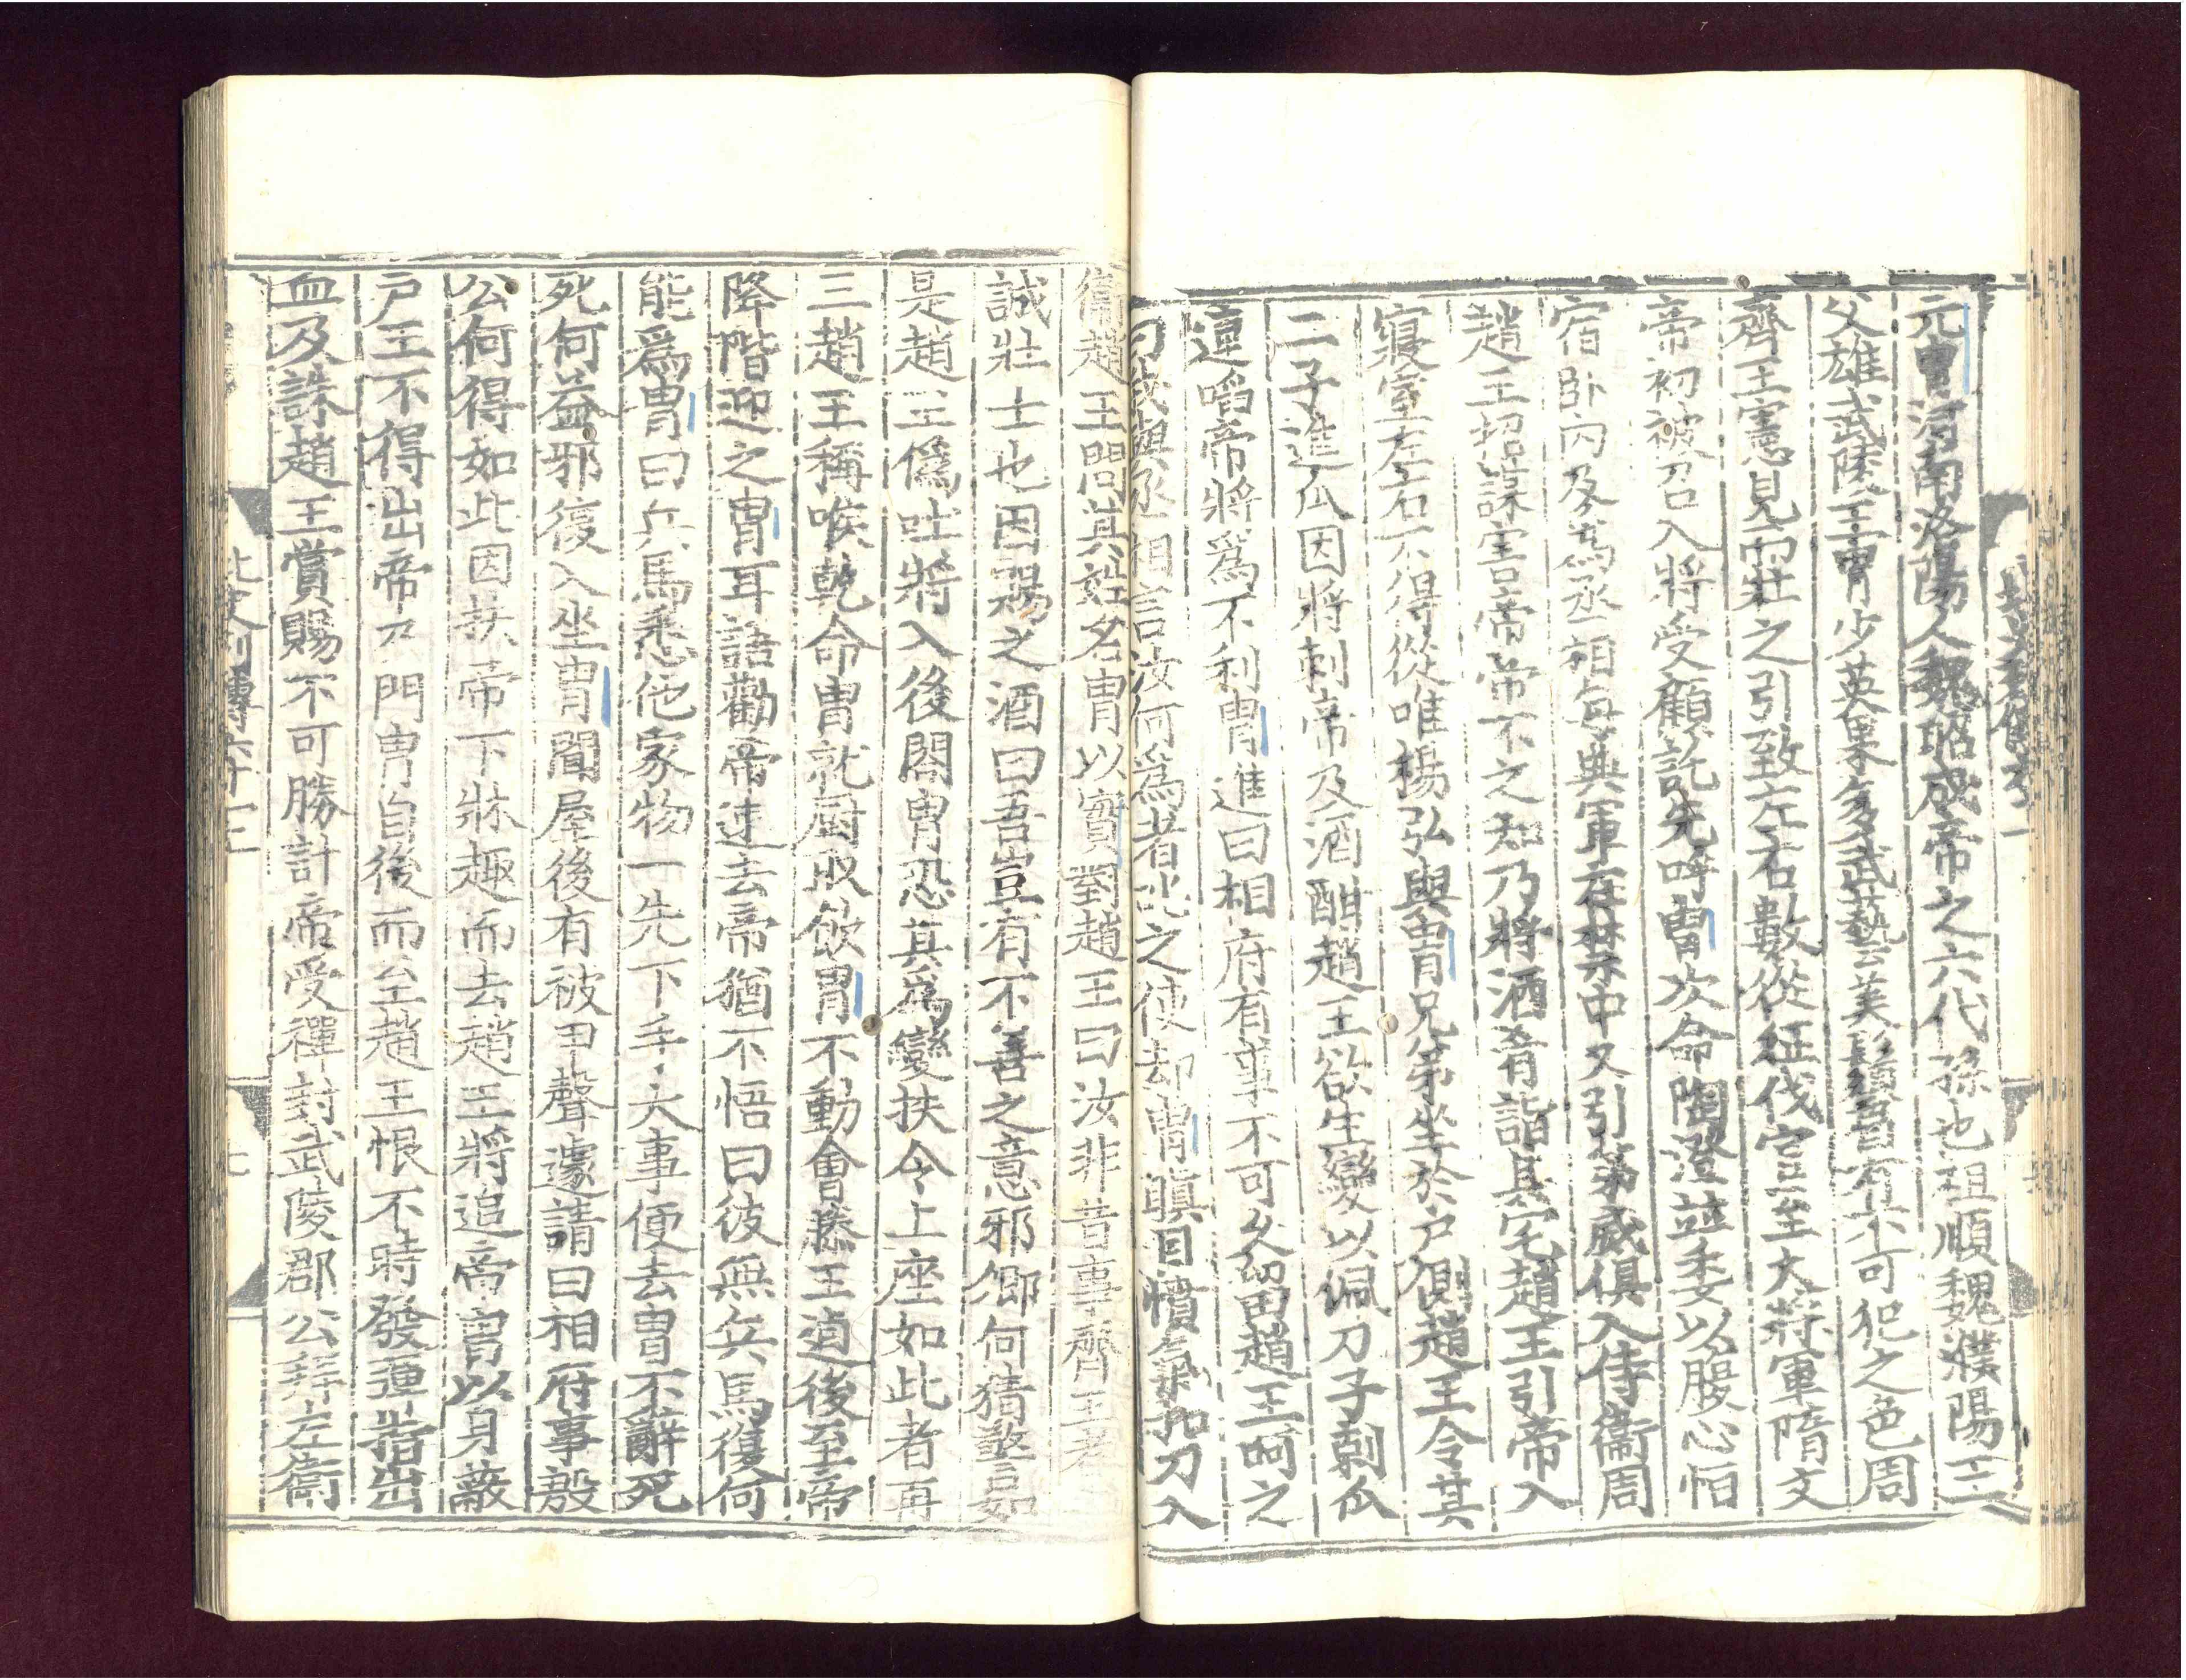 元冑河南洛陽人魏昭成帝之六代孫也祖順魏濮陽王
父雄武陵王冑少英果多武藝美鬚眉有不可犯之色周
齊王憲見而壯之引致左右數從征伐官至大將軍隋文
帝初被召入將受顧託先呼冑次命陶澄並委以腹心恒
宿卧内及爲丞相每典軍在禁中又引弟威俱入侍衞周
趙王招謀害帝帝不之知乃將酒肴詣其宅趙王引帝入
寢室左右不得從唯楊弘與冑兄弟坐於户側趙王令其
二子進瓜因將刺帝及酒酣趙王欲生變以佩刀子刺瓜
連啗帝將爲不利冑進曰相府有事不可久留趙王呵之
曰我與丞相言汝何爲者叱之使却冑瞋目憤氣扣刀入
衞趙王問其姓名冑以實對趙王曰汝非昔事齊王者
誠壯士也因賜之酒曰吾豈有不善之意邪卿何猜警如
是趙王僞吐將入後閤冑恐其爲變扶令上座如此者再
三趙王稱喉乾命冑就厨取飲冑不動會滕王逌後至帝
降階迎之冑耳語勸帝速去帝猶不悟曰彼無兵馬復何
能爲冑曰兵馬悉他家物一先下手大事便去冑不辭死
死何益邪復入坐冑聞屋後有被甲聲遽請曰相府事殷
公何得如此因扶帝下牀趣而去趙王將追帝冑以身蔽
户王不得出帝及門冑自後而至趙王恨不時發彈指出
血及誅趙王賞賜不可勝計帝受禪封武陵郡公拜左衞
北史列傳六十一
七